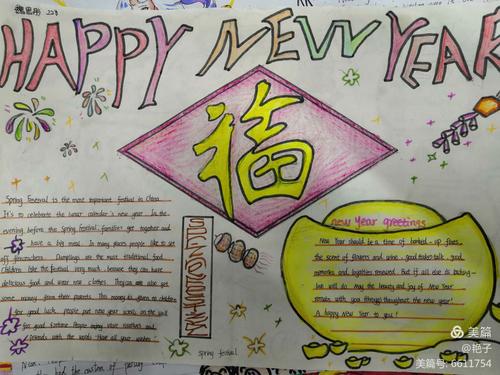 魏思彤 228
HAPPY NEW YEAR
福
Spring Festival is the most important festival in China
It's to celebrate the lunar calendar's new year. In the
evening before the Spring Festival, families get together and
have a big meal. In many places people like to set
off firecrackers. Dumplings are the most traditional food.
Children like the festival very much, because they can have
delicious food and wear new clothes. They can also get
some money from their parents. This money is given to children
for good luck. People put new year scrolls on the wall
for good fortune.
spring festival
new Year greetings
New Year should be a time of banked-up fires,
the scent of flowers and wine, good talks, good
memories and loyalties renewed. But if all else is lacking-
love will do. May the beauty and joy of New Year
remain with you throughout the new year!
A happy New Year to you!
美篇
@艳子
美篇号: 6611754